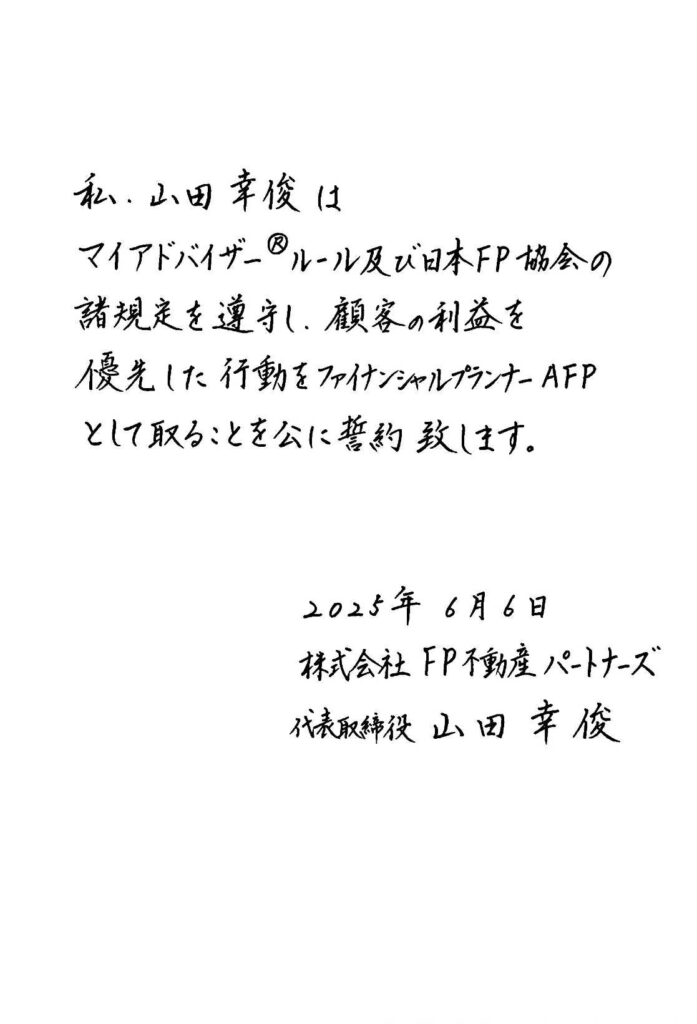 私、山田 幸俊 は
マイアドバイザー®ルール及び日本FP協会の
諸規定を遵守し、顧客の利益を
優先した行動をファイナンシャルプランナーAFP
として取ることを公に誓約致します。
2025年 6月6日
株式会社 FP不動産パートナーズ
代表取締役 山田 幸俊